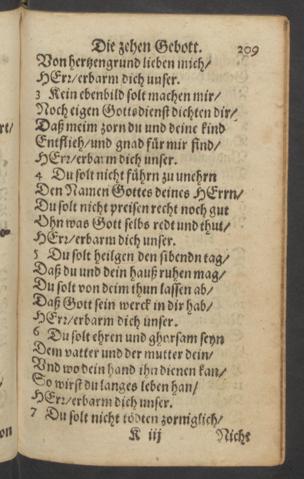 Die zehen Gebott. 209
Von hertzengrund lieben mich/
HErr/ erbarm dich unser.
3 Kein ebenbild solt machen mir/
Noch eigen Gottsdienst dichten dir/
Daß meim zorn du und deine kind
Entflieh/ und gnad für mir find/
HErr/ erbarm dich unser.
4 Du solt nicht führn zu unehrn
Den Namen Gottes deines HErrn/
Du solt nicht preisen recht noch gut
Ohn was Gott selbs redt und thut/
HErr/ erbarm dich unser.
5 Du solt heilgen den sibendn tag/
Daß du und dein hauß ruhen mag/
Du solt von deim thun lassen ab/
Daß Gott sein werck in dir hab/
HErr/ erbarm dich unser.
6 Du solt ehren und ghorsam seyn
Dem vatter und der mutter dein/
Vnd wo dein hand ihn dienen kan/
So wirst du langes leben han/
HErr/ erbarm dich unser.
7 Du solt nicht tödten zorniglich/
K iij Nicht